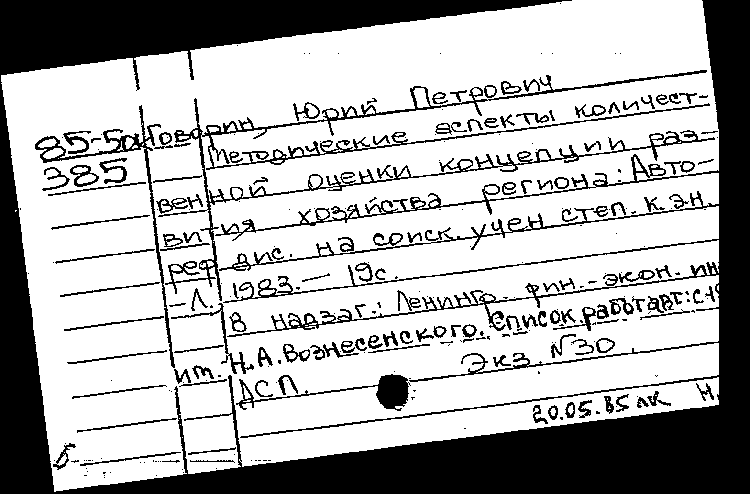 85-5дк Говорин, Юрий Петрович
385 Методические аспекты количест-
венной оценки концепции раз-
вития хозяйства региона: Авто-
реф. дис. на соиск. учен степ. к.эн.
-Л., 1983.- 19с.
В надзаг.: Ленингр. фин.-экон. ин
им. Н.А.Вознесенского. Список работ авт: с.19
ДСП. Экз. №30.
20.05.85 лк Н.